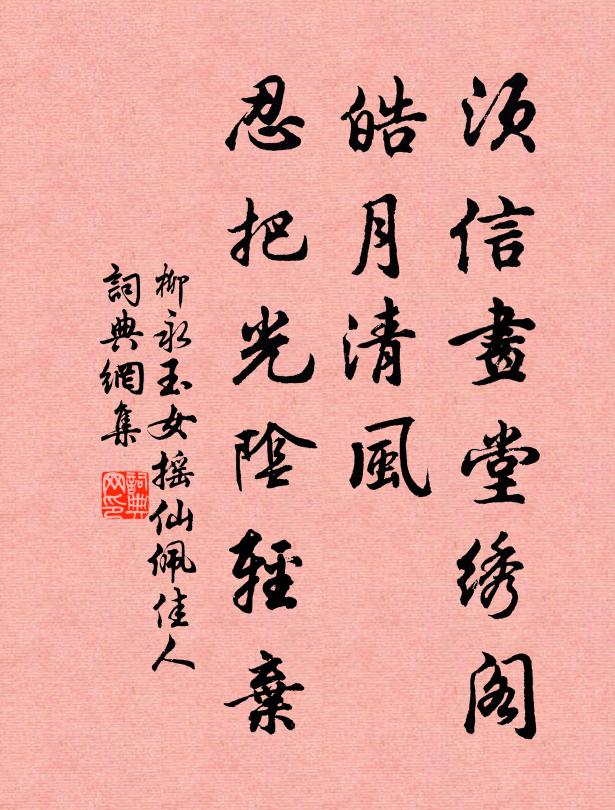 须信畫堂绣阁
皓月清風
忍把光陰輕棄
柳永玉女摇仙佩佳人
詞典網集
詞典网印